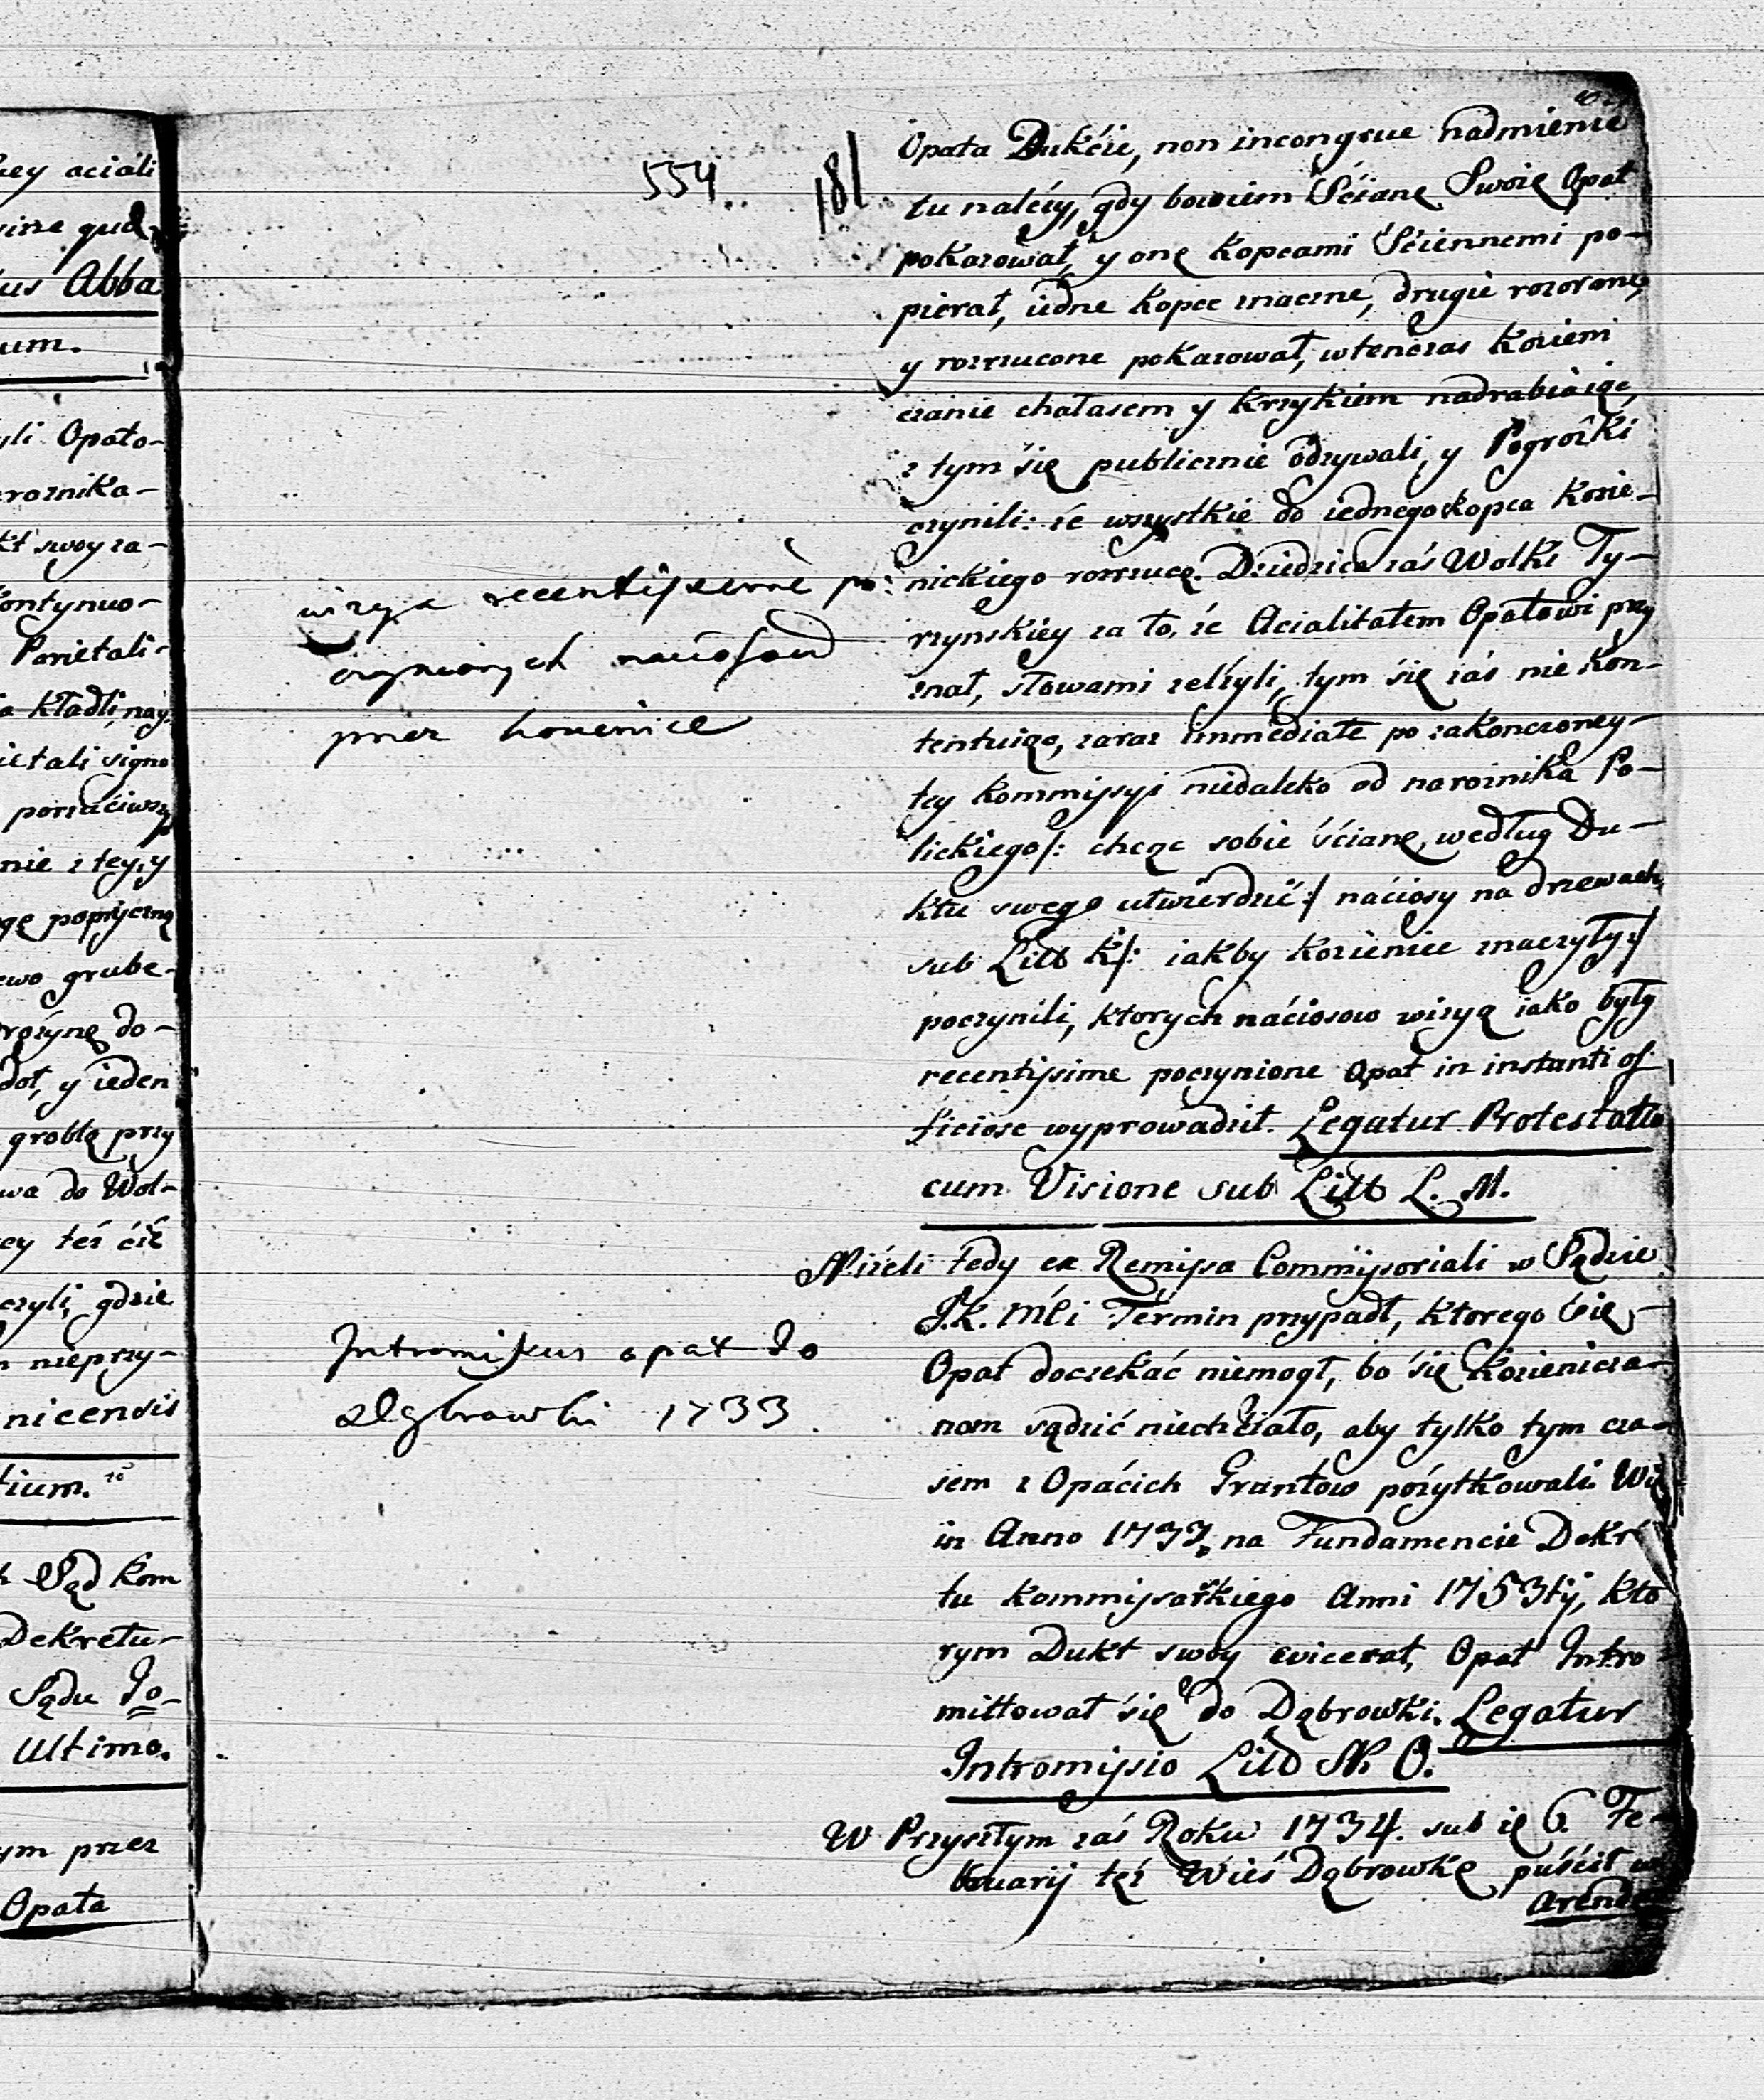 key aciali
Abba
um.
yli Opato-
roznika-
kt swoy za-
kontynuo-
Parietali-
a kładli, nay
ietali signo
porzuciwszy
nie z tey, y
gę poprzyczną
ewo grube-
rożynę do-
doł, y ieden
groblą przy
wa do Wol-
ey też
czyli, gdzie
nieprzy-
nicensis
tium.
Sąd kom
Dekretu-
Sądu Jo-
Ultimo.
ym przez
Opata
554.
181
Opata Dukcie, non incongrue nadmienie
tu należy, gdy bowiem Scianę Swoię Opat
pokazował, y onę kopcami Sciennemi po-
pierał, iedne kopce znaczne, drugie rozorane,
y rozrzucone pokazował, wtenczas Kozieni
czanie chałasem y krzykiem nadrabiaiąc,
z tym się publicznie odzywali, y Pogrożki
czynili: że wszystkie do iednego kopca Kozie-
nickiego rozrzucą. Dziedzica zaś Wolki Ty-
rzynskiey za to, że Acialitatem Opatowi przy
znał, słowami zelżyli, tym się zaś nie kon-
tentuiąc, zaraz immediate po zakonczoney-
tey kommissyi niedaleko od naroznika Po-
lickiego /: chcąc sobie ścianę według Du-
ktu swego utwierdzić :/ naciosy na drzewach
sub Litt K /: iakby Kozienice znaczyły :/
poczynili, ktorych naciosow wizyą iako były
recentissime poczynione Opat in instanti of-
ficiose wyprowadził. Legatur Protestatio
cum Visione sub Litt L. M.
Niżeli tedy ex Remissa Commissoriali w Sądzie
J.K. Mci Termin przypadł, ktorego się
Opat doczekać niemogł, bo się Kozienicza-
nom sądzić niechciało, aby tylko tym cza-
sem z Opacich Gruntow pożytkowali. Wię
in Anno 1733. na Fundamencie Dekre
tu kommissarskiego Anni 1753tij, kto
rym Dukt swoy evicerat, Opat Intro
mittował się do Dąbrowki. Legatur
Intromissio Litt N. O.
W Przyszłym zaś Roku 1734. sub 6. Fe-
bruarij też Wieś Dąbrowkę puścił w
Arendę
wizya recentissime po:
czynionych naciosow
przez kozienice
Intromissus opat do
Dąbrowki 1733